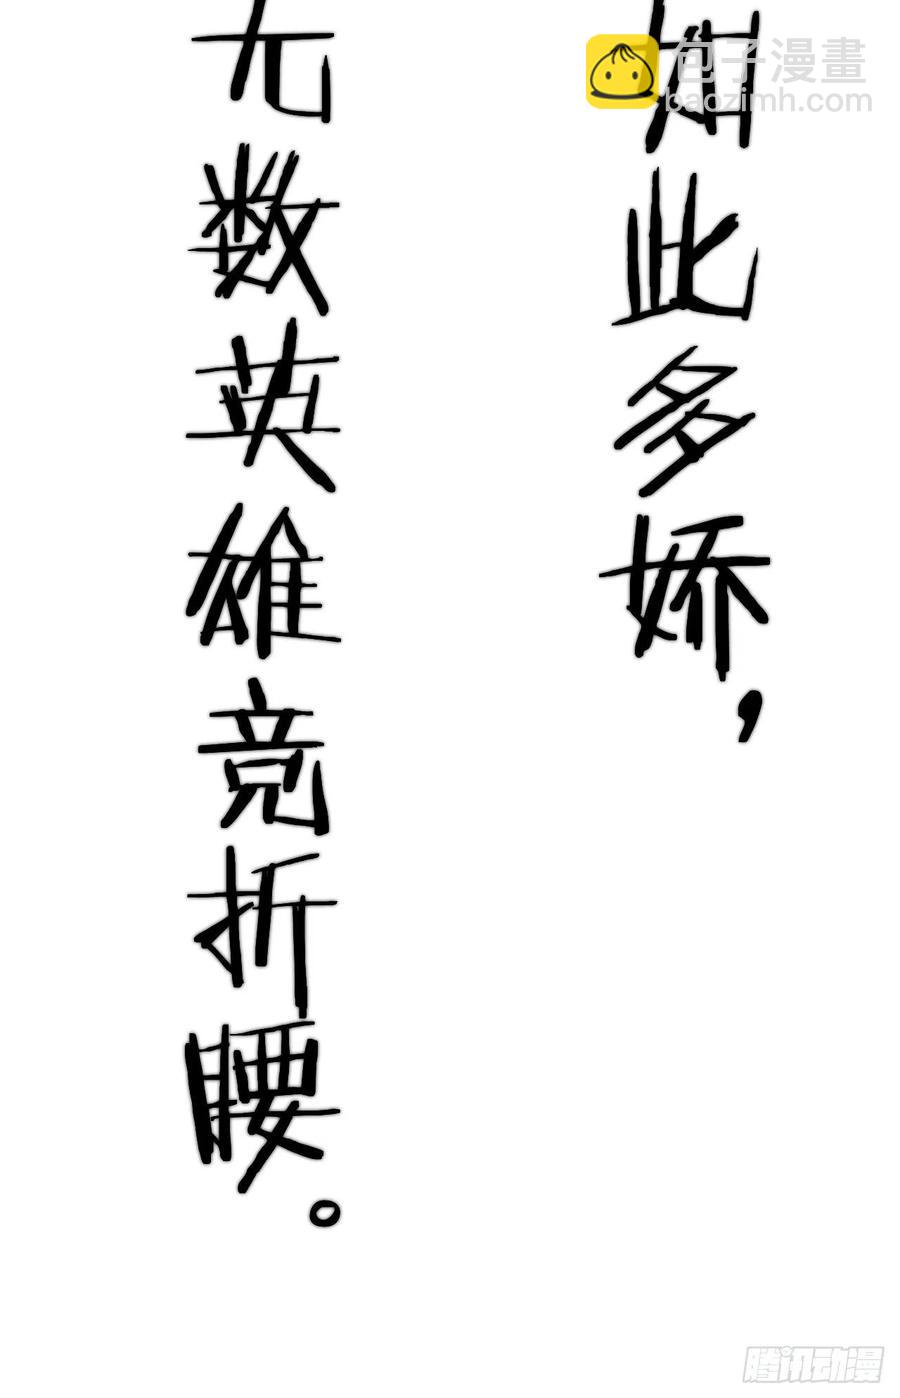 如此多娇，
无数英雄竞折腰。
包子漫畫
baozimh.com
腾讯动漫